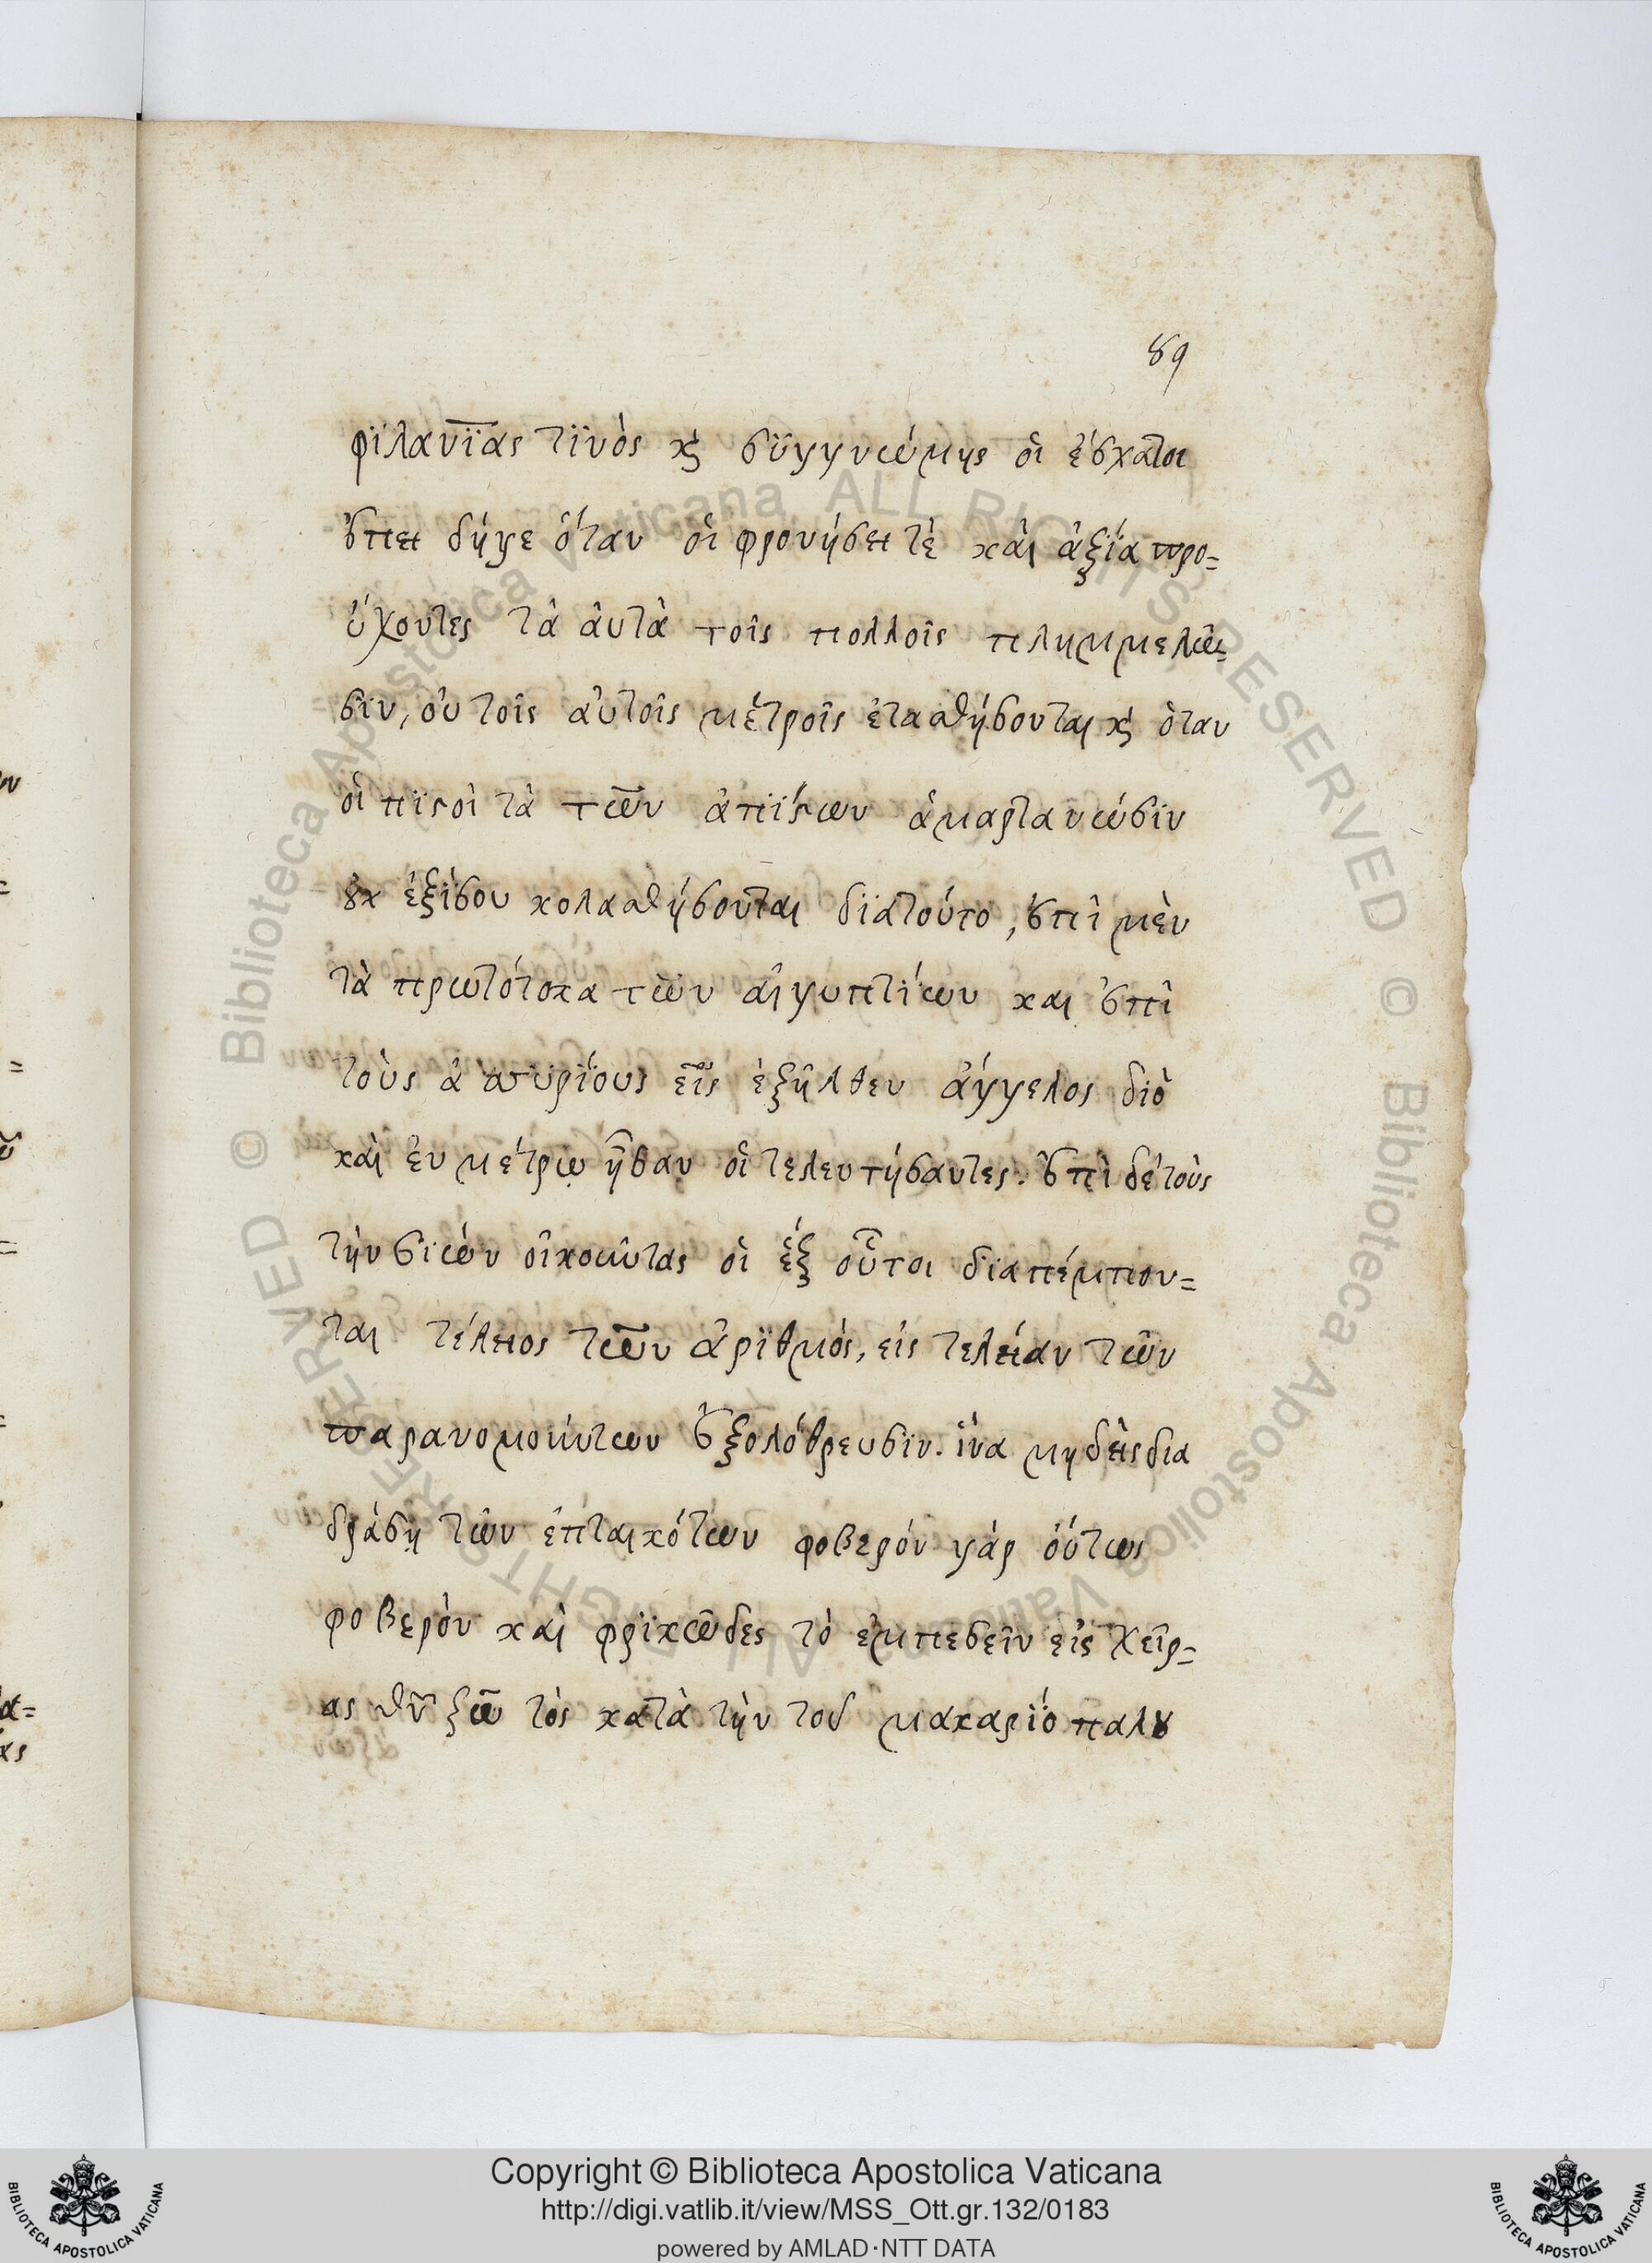 89
φϊλανϊ̅ας τϊνὸς κ̀ σϋγγνώμης οἱ ἐσχατοι
ἐπει δήγε ὅταν οἱ φρονήσει τὲ καὶ ἀξΐα προ=
ύχοντες τὰ ἀυτὰ τοῖς πολλοῖς πλημμελῶ=
σϊν, οὐ τοῖς αὐτοῖς μέτροῖς ἐτασθήσονται κ̀ ὁταν
οἱ πϊστοὶ τὰ τῶν ἀπΐστων ἁμαρτανώσϊν
ȣκ ἐξίσου κολασθήσονται διατούτο, ἐπὶ μὲν
τὰ πρωτότοκα τῶν αἰγυπτίων και ἐπὶ
τοὺς ἀσσυρΐους εἷς ἐξῆλθεν ἄγγελος διὸ
καὶ ἐν μέτρῳ ῆ̓σαν οἱ τελευτήσαντες. ἐπὶ δὲ τοὺς
τὴν σϊὼν οἰκοῦντας οἱ ἕξ οὗτοι διαπέμπον=
ται τέλειος τῶν ἀρϊθμὸς, εἰς τελείαν τῶν
παρανομούντων ἐξολόθρευσϊν. ἵνα μηδεὶς δια
δράση τῶν ἐπταικότων φοβερόν γάρ ὁύτως
φοβερὸν καὶ φρϊκῶδες τὸ ἐμπεσεῖν εἰς χεῖρ=
ας θῦ ζῶ τὸς κατὰ τὴν τοῦ μακαρϊό παλȣ
Copyright © Biblioteca Apostolica Vaticana
http://digi.vatlib.it/view/MSS_Ott.gr.132/0183
powered by AMLAD·NTT DATA
BIBLIOTECA APOSTOLICA VATICANA
BIBLIOTECA APOSTOLICA VATICANA